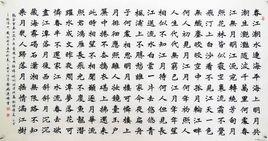 春江潮水連海平海上明月共
潮生灩灩隨波千萬里何處春
江無月明江流宛轉繞芳甸月
照花林皆似霰空裏流霜不覺
飛汀上白沙看不見江天一色
無纖塵皎皎空中孤月輪江畔
何人初見月江月何年初照人
人生代代無窮已江月年年只
相似不知江月待何人但見長
江送流水白雲一片去悠悠青
楓浦上不勝愁誰家今夜扁舟
子何處相思明月樓可憐樓上
月徘徊應照離人妝鏡臺玉戶
簾中卷不去搗衣砧上拂還來
此時相望不相聞願逐月華流
照君鴻雁長飛光不度魚龍潛
躍水成文昨夜閑潭夢落花可
憐春半不還家江水流春去欲
盡江潭落月復西斜斜月沉沉
藏海霧碣石瀟湘無限路不知
乘月幾人歸落月搖情滿江樹